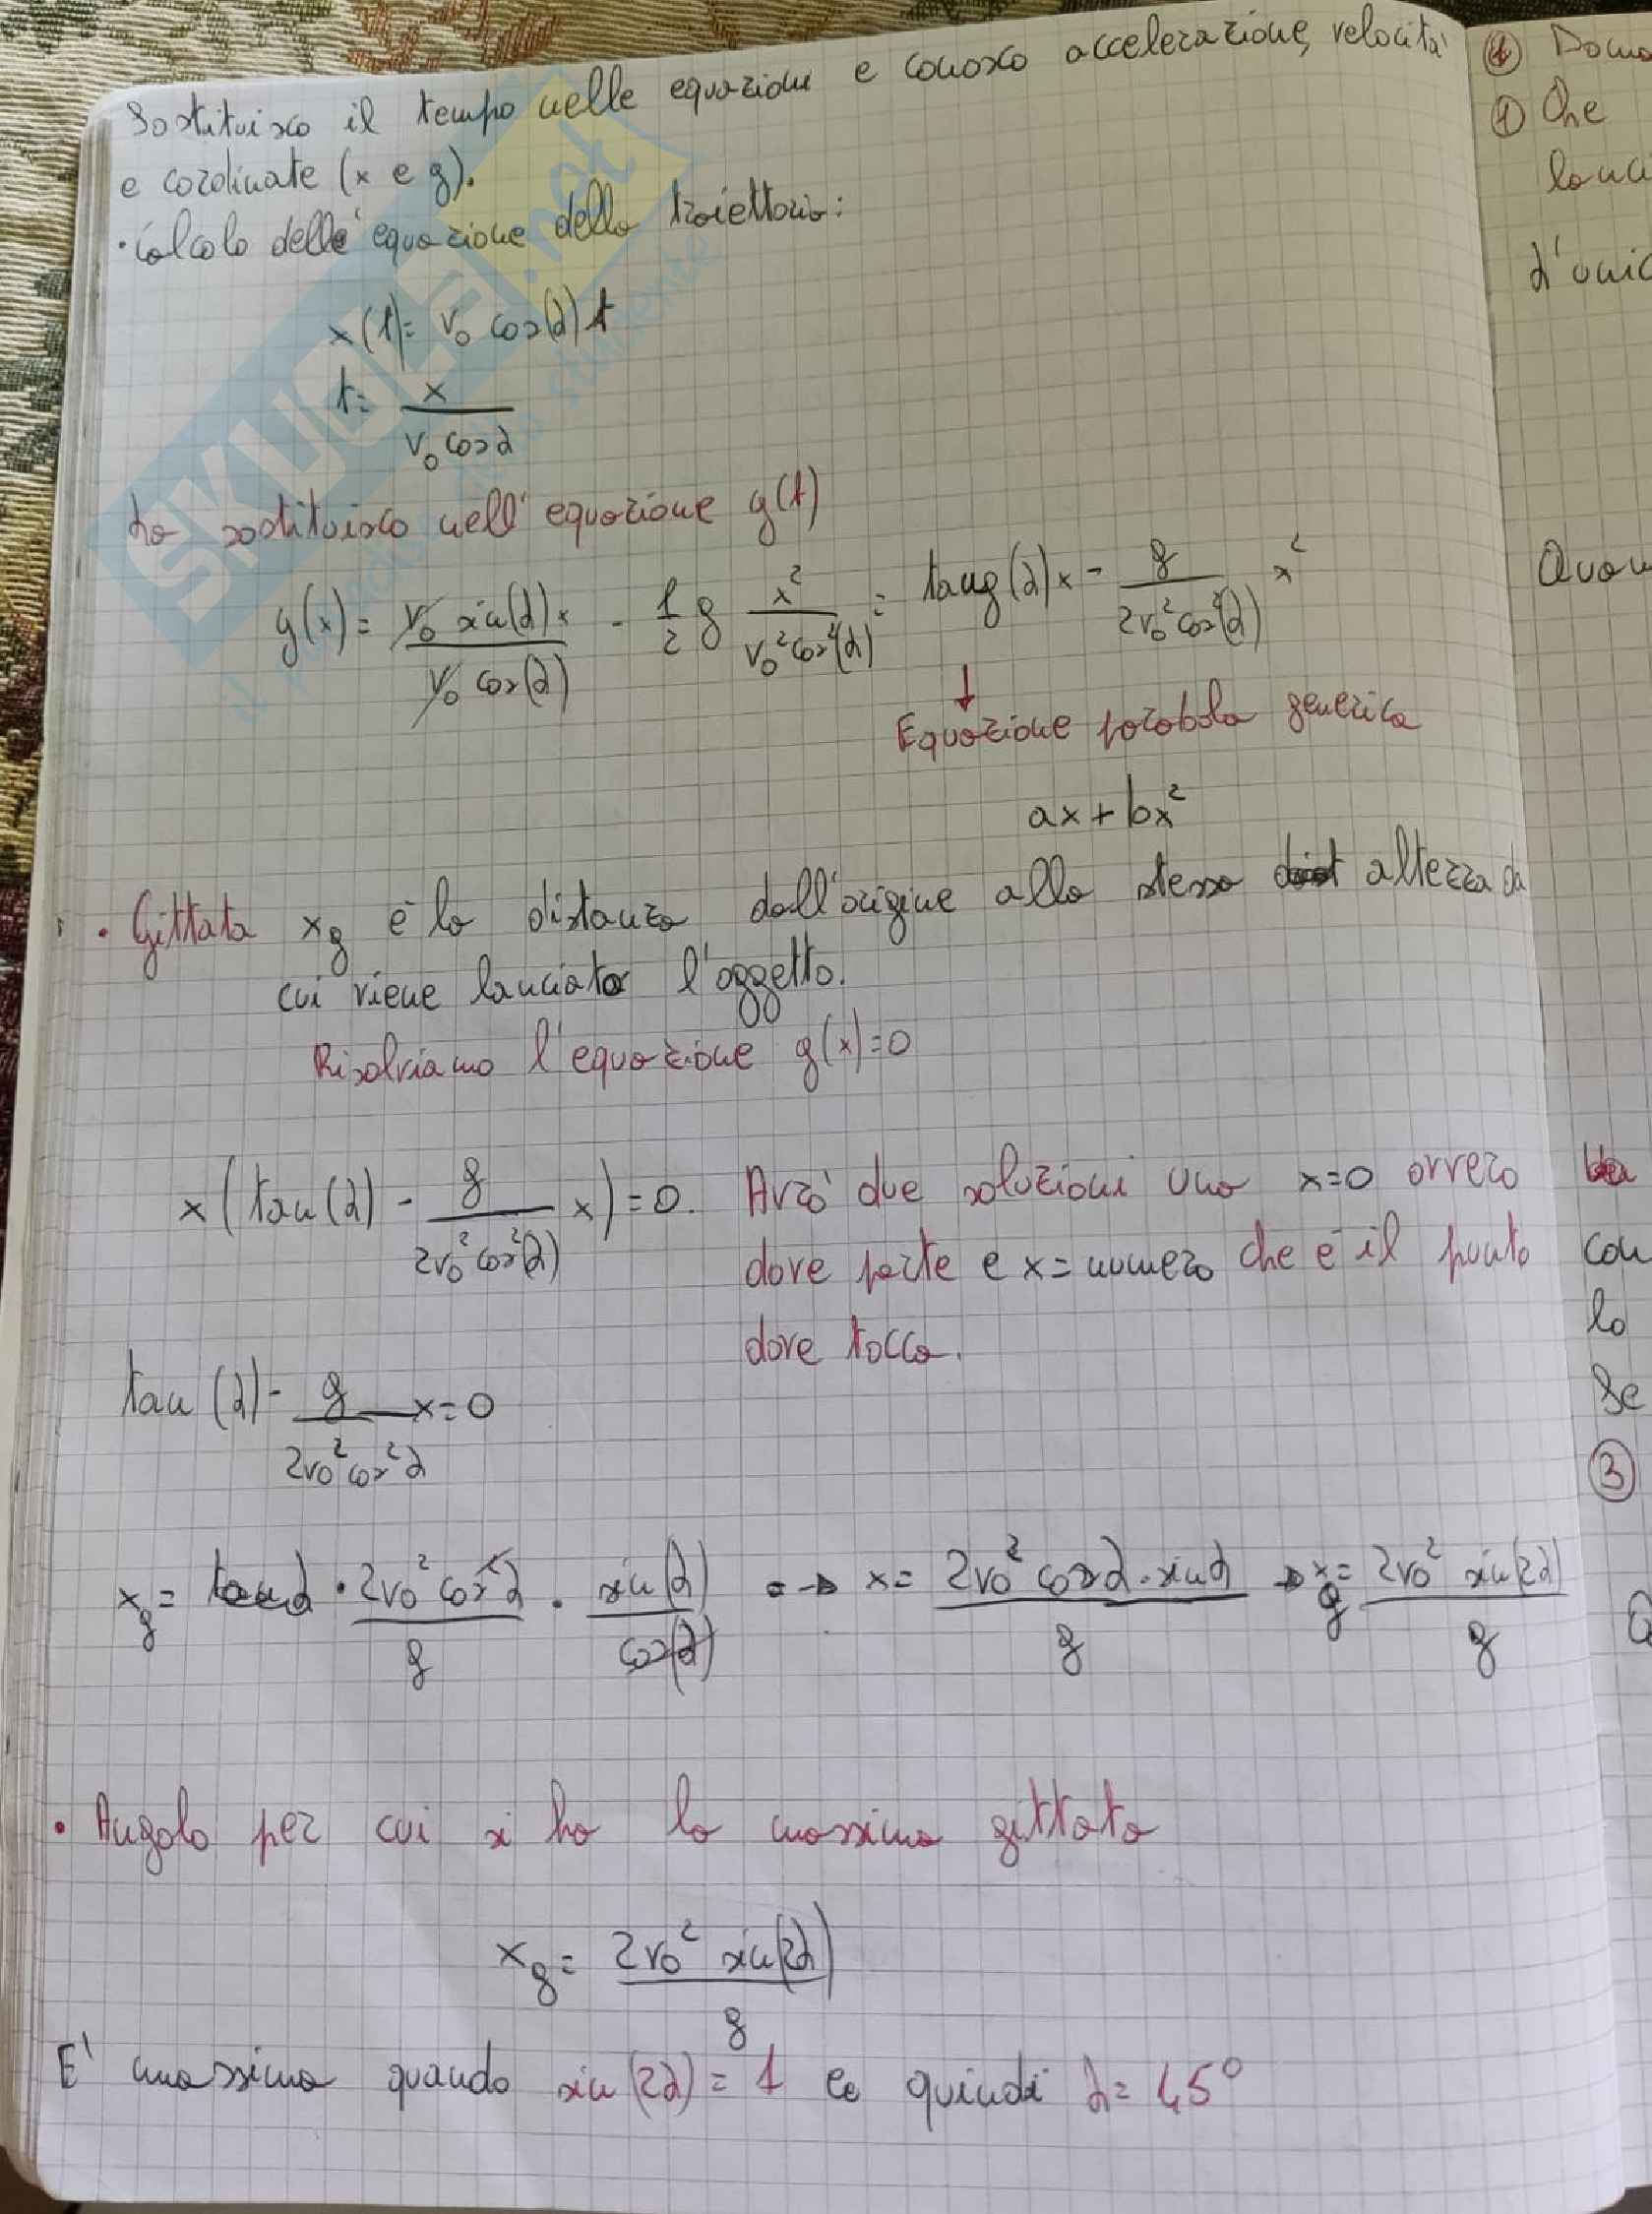 Sostituisco il tempo nelle equazioni e conosco accelerazione, velocità
e coordinate (x e y).
• Calcolo dell'equazione della traiettoria:
x(t) = v₀ cos(α) t
t = x / (v₀ cos α)
Lo sostituisco nell'equazione y(t)
y(x) = v₀ sin(α) x / (v₀ cos(α)) - 1/2 g x² / (v₀² cos²(α)) = tang(α) x - g / (2v₀² cos²(α)) x²
↓
Equazione parabola generica
ax + bx²
• Gittata x_g è la distanza dall'origine alla stessa altezza da
cui viene lanciato l'oggetto.
Risolviamo l'equazione y(x) = 0
x (tan(α) - g / (2v₀² cos²(α)) x) = 0. Avrò due soluzioni una x=0 ovvero
dove parte e x = numero che è il punto
dove tocca.
tan(α) - g / (2v₀² cos² α) x = 0
x_g = tan α · 2v₀² cos² α / g · sin(α) / cos(α) → x = 2v₀² cos α · sin α / g → x_g = 2v₀² sin(2α) / g
• Angolo per cui si ha la massima gittata
x_g = 2v₀² sin(2α) / g
E' massima quando sin(2α) = 1 e quindi α = 45°
① Che
lanci
d'unic
con
lo
Se
③
SKUOLA.net
il paradiso dello studente